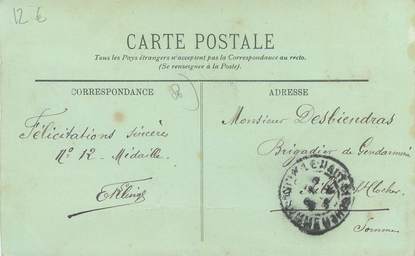 12 €
CARTE POSTALE
Tous les Pays étrangers n'acceptent pas la Correspondance au recto.
(Se renseigner à la Poste).
CORRESPONDANCE
ADRESSE
Félicitations sincères
No 12 - Médaille.
Monsieur Desbiendras
Brigadier de Gendarmerie
Somme